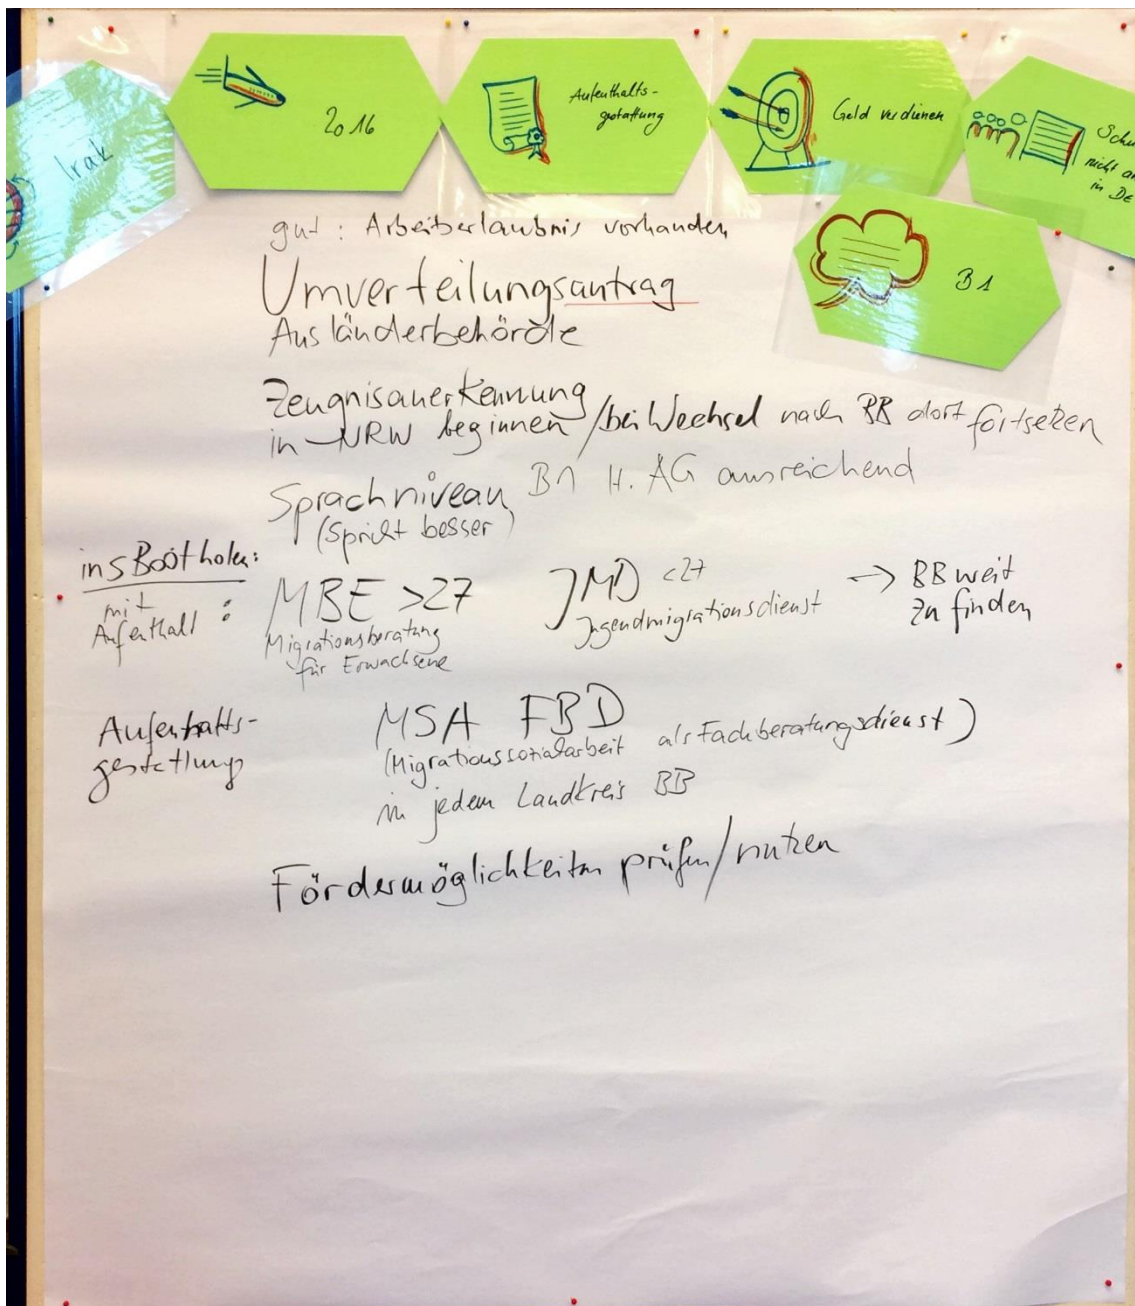 Irak
2016
Aufenthalts-
gestattung
Geld verdienen
nicht
in DE
B1
gut: Arbeitserlaubnis vorhanden
Umverteilungsantrag
Ausländerbehörde
Zeugnisanerkennung
in NRW beginnen / bei Wechsel nach BB dort fortsetzen
Sprachniveau B1 lt. AG ausreichend
(Spricht besser)
ins Boot holen:
mit
Aufenthalt :
MBE >27
Migrationsberatung
für Erwachsene
JMD <27
Jugendmigrationsdienst
→ BB weit
zu finden
Aufenthalts-
gestattung
MSA FBD
(Migrationssozialarbeit als Fachberatungsdienst)
in jedem Landkreis BB
Fördermöglichkeiten prüfen/nutzen